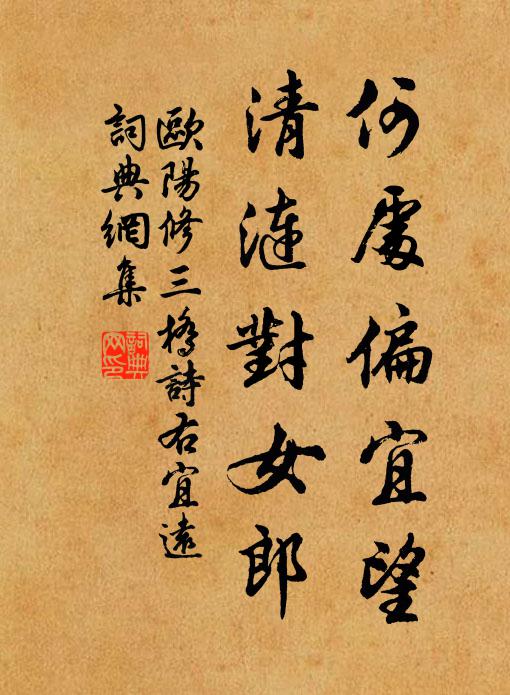 何處偏宜望
清漣對女郎
歐陽修三橋詩右宜遠
詞典網集
詞典
网印